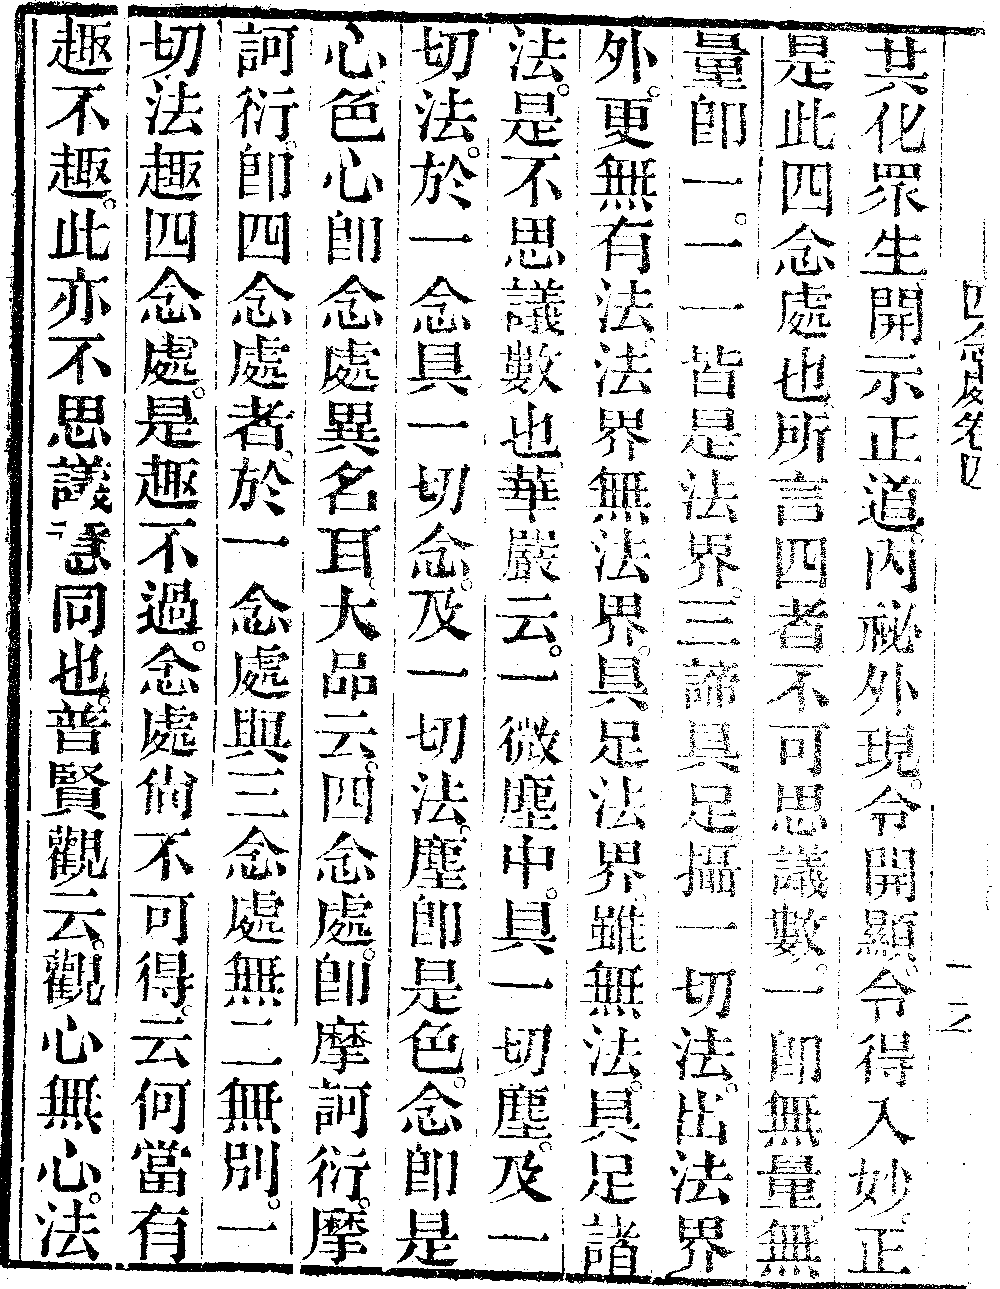 其化眾生開示正道。內祕外現。令開顯。令得入妙正
是此四念處也。所言四者不可思議數。一卽無量無
量卽一。一一皆是法界。三諦具足攝一切法。出法界
外。更無有法。法界無法界。具足法界。雖無法。具足諸
法。是不思議數也。華嚴云。一微塵中。具一切塵。及一
切法。於一念具一切念。及一切法。塵卽是色。念卽是
心。色心卽念處異名耳。大品云。四念處。卽摩訶衍。摩
訶衍。卽四念處者。於一念處與三念處無二無別。一
切法趣四念處。是趣不過。念處尙不可得。云何當有
趣不趣。此亦不思議意同也。普賢觀云。觀心無心。法
四念處卷四